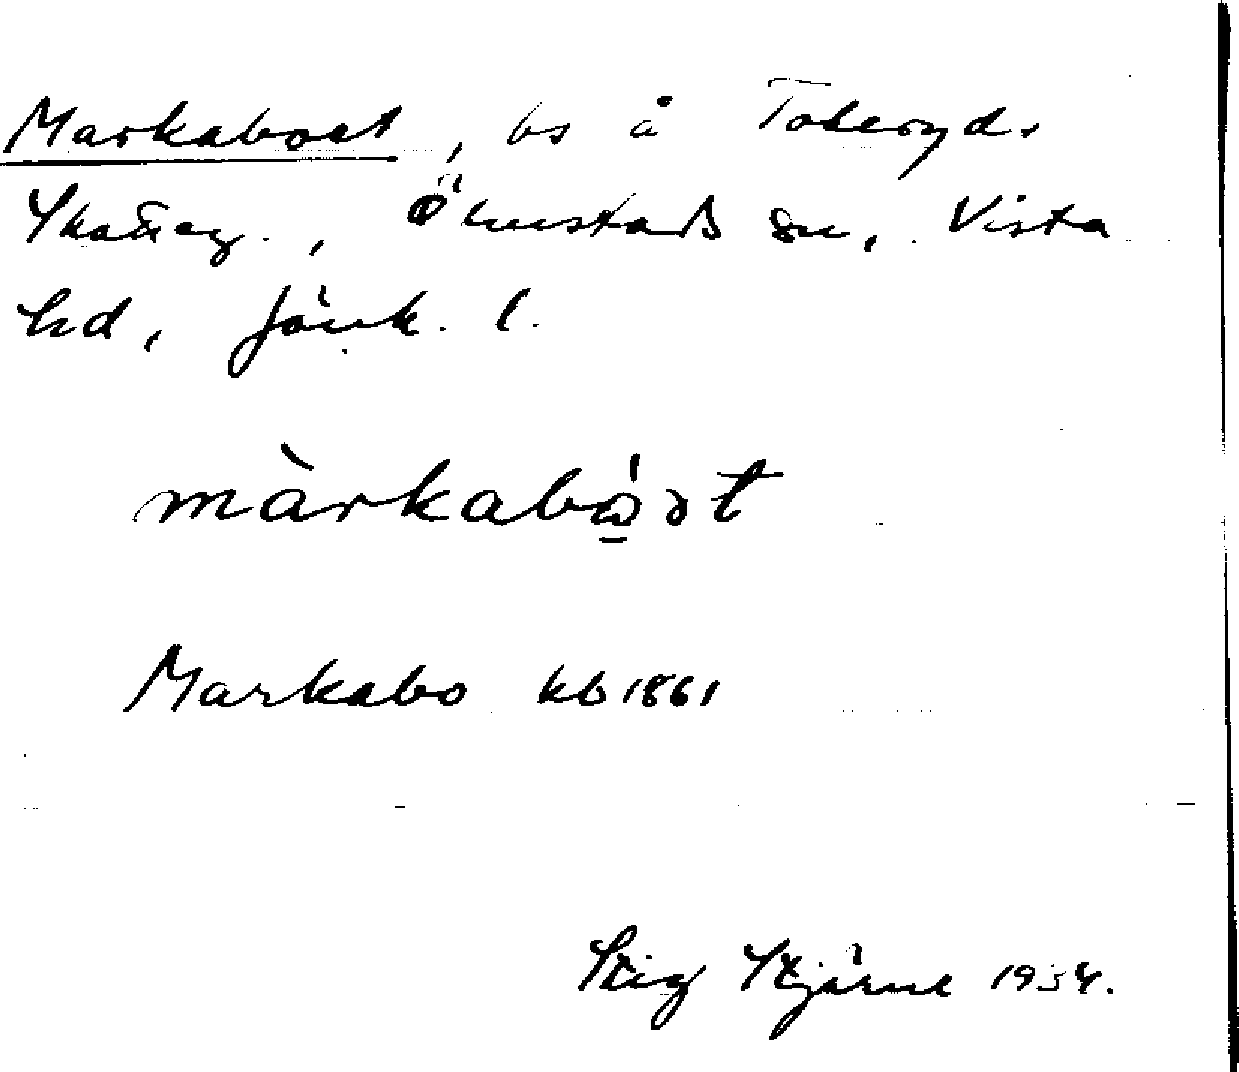 Markaboet, bs å Toberyds
Skatteg., Ölmstads sn, Vista
hd, Jönk. l.
màrkabo̲´ət
Markabo kb 1861
Stig Stjärne 1934.